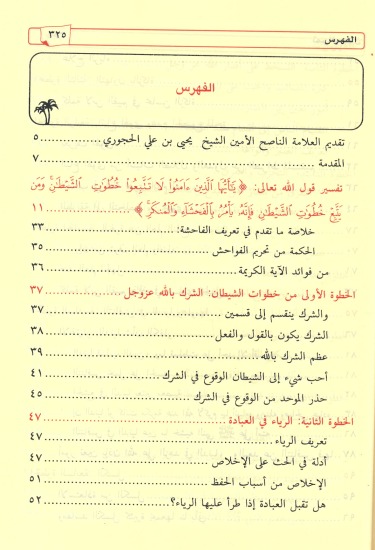 الفهرس ٣٢٥
الفهرس
تقديم العلامة الناصح الأمين الشيخ يحيى بن علي الحجوري ٥
المقدمة ٧
تفسير قول الله تعالى: ﴿ يَٰٓأَيُّهَا ٱلَّذِينَ ءَامَنُوا۟ لَا تَتَّبِعُوا۟ خُطُوَٰتِ ٱلشَّيْطَٰنِ ۚ وَمَن
يَتَّبِعْ خُطُوَٰتِ ٱلشَّيْطَٰنِ فَإِنَّهُۥ يَأْمُرُ بِٱلْفَحْشَآءِ وَٱلْمُنكَرِ ﴾ ١١
خلاصة ما تقدم في تعريف الفاحشة: ٣٣
الحكمة من تحريم الفواحش ٣٥
من فوائد الآية الكريمة ٣٦
الخطوة الأولى من خطوات الشيطان: الشرك بالله عزوجل ٣٧
والشرك ينقسم إلى قسمين ٣٧
الشرك يكون بالقول والفعل ٣٨
عظم الشرك بالله ٣٩
أحب شيء إلى الشيطان الوقوع في الشرك ٤١
حذر الموحد من الوقوع في الشرك ٤٥
الخطوة الثانية: الرياء في العبادة ٤٧
تعريف الرياء: ٤٧
أدلة في الحث على الإخلاص ٤٧
الإخلاص من أسباب الحفظ ٥١
هل تقبل العبادة إذا طرأ عليها الرياء؟ ٥٢